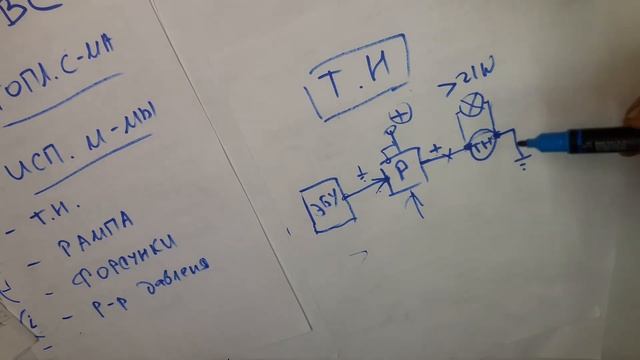 ВС
ТОПЛ. С-МА
ИСП. М-МЫ
- Т.Н.
- РАМПА
- ФОРСУНКИ
- Р-Р давления
Т.Н
>21W
+
ЭБУ
Р
+
ТН